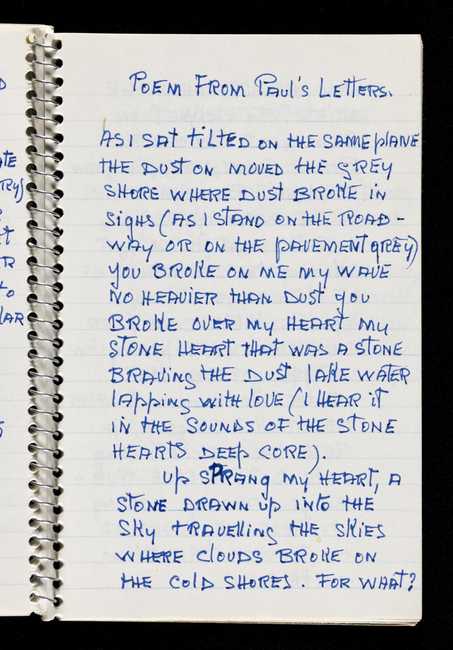 D
ATE
RY
R
TO
LAR
POEM FROM PAUL'S LETTERS.
AS I SAT TILTED ON THE SAME PLANE
THE DUST ON MOVED THE GREY
SHORE WHERE DUST BROKE IN
SIGHS (AS I STAND ON THE ROAD-
WAY OR ON THE PAVEMENT GREY)
YOU BROKE ON ME MY WAVE
NO HEAVIER THAN DUST YOU
BROKE OVER MY HEART MY
STONE HEART THAT WAS A STONE
BRAVING THE DUST LAKE WATER
LAPPING WITH LOVE (I HEAR IT
IN THE SOUNDS OF THE STONE
HEARTS DEEP CORE).
UP SPRANG MY HEART, A
STONE DRAWN UP INTO THE
SKY TRAVELLING THE SKIES
WHERE CLOUDS BROKE ON
THE COLD SHORES. FOR WHAT?